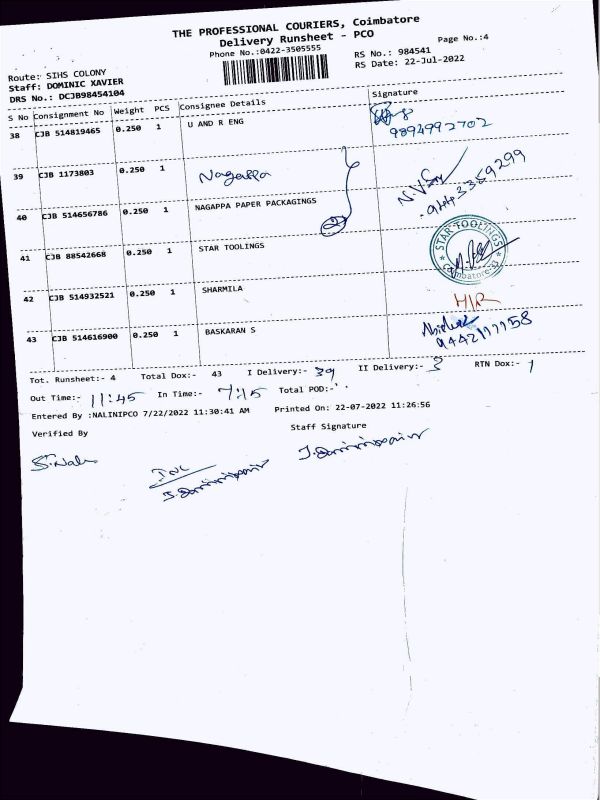 THE PROFESSIONAL COURIERS, Coimbatore
Delivery Runsheet - PCO
Phone No.:0422-3505555
Page No.:4
RS No.: 984541
RS Date: 22-Jul-2022
Route: SIHS COLONY
Staff: DOMINIC XAVIER
DRS No.: DCJB98454104
S No Consignment No Weight PCS Consignee Details Signature
38 CJB 514819465 0.250 1 U AND R ENG
9894992702
39 CJB 1173803 0.250 1 Nagappa
40 CJB 514656786 0.250 1 NAGAPPA PAPER PACKAGINGS
41 CJB 88542668 0.250 1 STAR TOOLINGS
STAR TOOLINGS
Coimbatore-33
42 CJB 514932521 0.250 1 SHARMILA H/R
43 CJB 514616900 0.250 1 BASKARAN S
Tot. Runsheet:- 4 Total Dox:- 43 I Delivery:- 39 II Delivery:- 3 RTN Dox:- 1
Out Time:- 11:45 In Time:- 7:15 Total POD:-
Entered By :NALINIPCO 7/22/2022 11:30:41 AM Printed On: 22-07-2022 11:26:56
Verified By Staff Signature